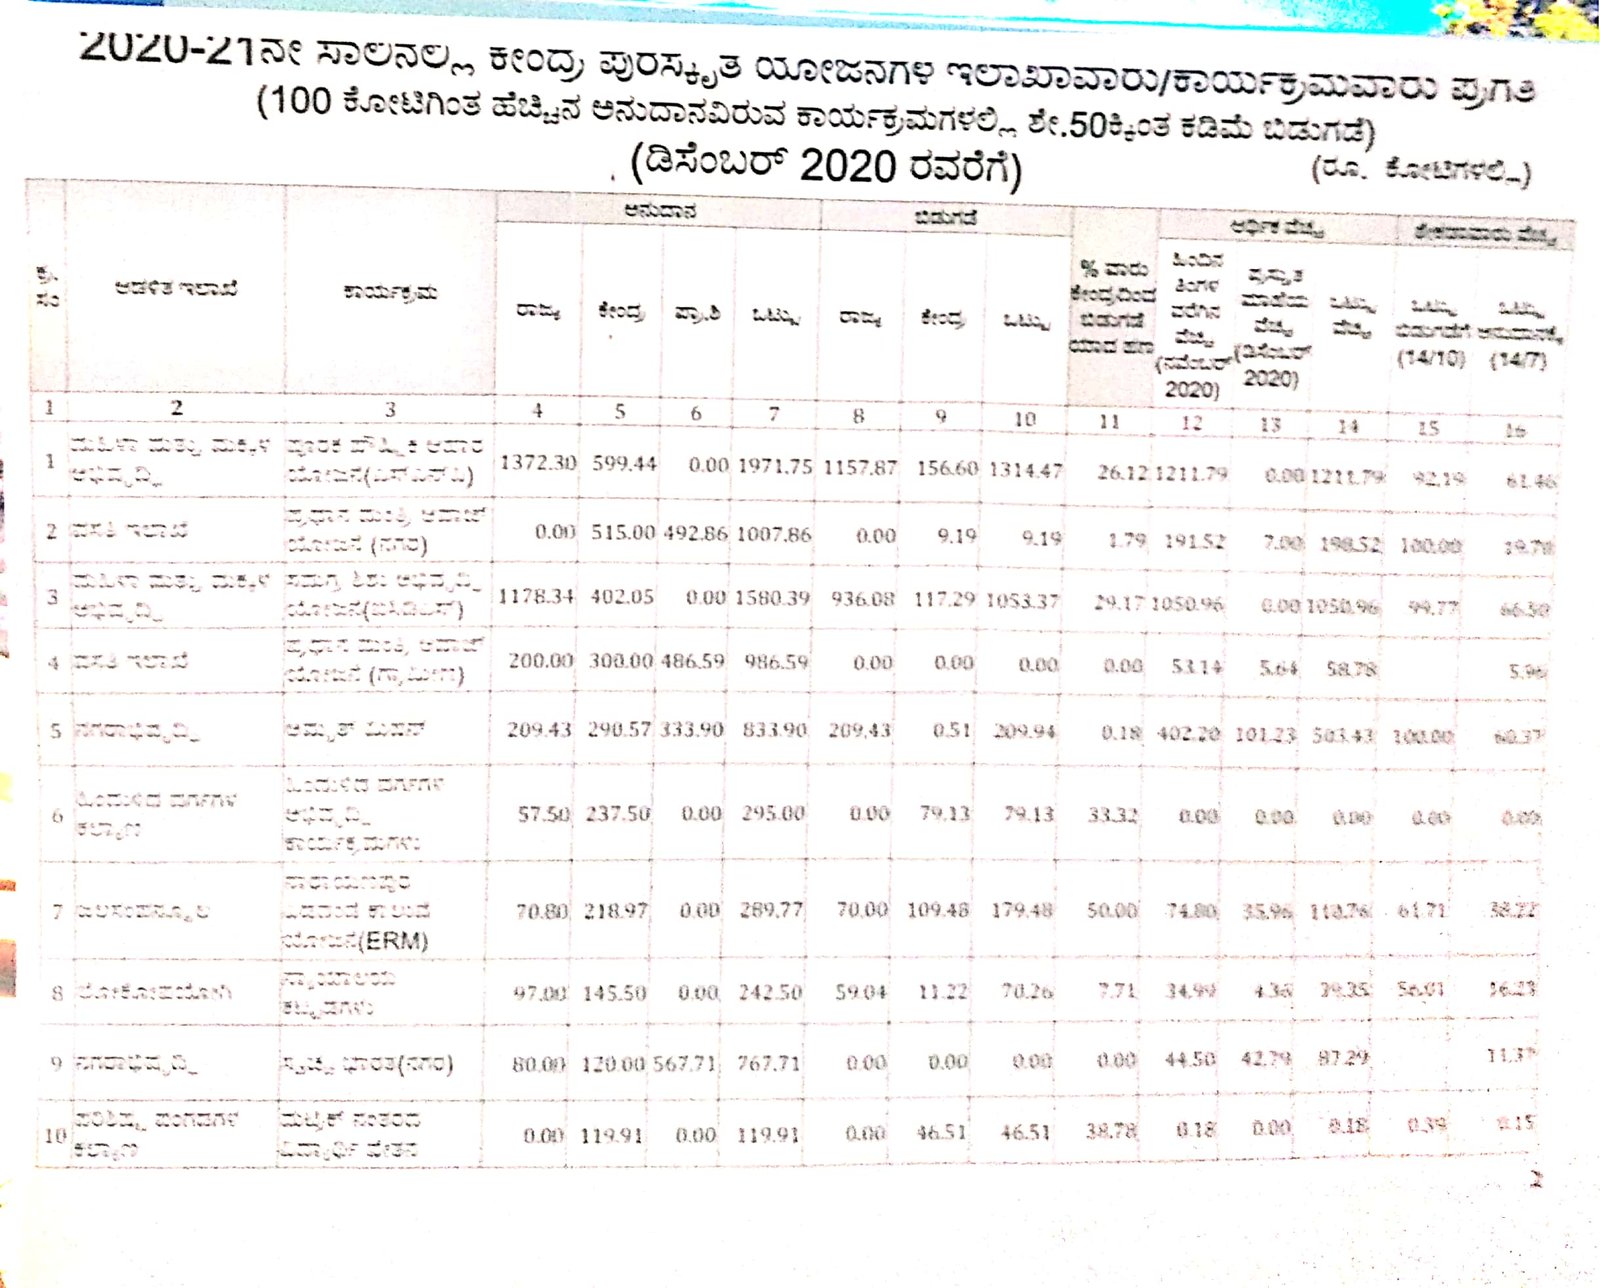 2020-21ನೇ ಸಾಲಿನಲ್ಲಿ ಕೇಂದ್ರ ಪುರಸ್ಕೃತ ಯೋಜನೆಗಳ ಇಲಾಖಾವಾರು/ಕಾರ್ಯಕ್ರಮವಾರು ಪ್ರಗತಿ
(100 ಕೋಟಿಗಿಂತ ಹೆಚ್ಚಿನ ಅನುದಾನವಿರುವ ಕಾರ್ಯಕ್ರಮಗಳಲ್ಲಿ ಶೇ.50ಕ್ಕಿಂತ ಕಡಿಮೆ ಬಿಡುಗಡೆ)
(ಡಿಸೆಂಬರ್ 2020 ರವರೆಗೆ) (ರೂ. ಕೋಟಿಗಳಲ್ಲಿ)
ಅನುದಾನ ಬಿಡುಗಡೆ ಆರ್ಥಿಕ ವೆಚ್ಚ ಶೇಕಡಾವಾರು ವೆಚ್ಚ
ಕ್ರ. ಸಂ ಆಡಳಿತ ಇಲಾಖೆ ಕಾರ್ಯಕ್ರಮ ರಾಜ್ಯ ಕೇಂದ್ರ ಪ್ರಾ.ಶಿ ಒಟ್ಟು ರಾಜ್ಯ ಕೇಂದ್ರ ಒಟ್ಟು % ವಾರು ಕೇಂದ್ರದಿಂದ ಬಿಡುಗಡೆ ಯಾದ ಹಣ ಹಿಂದಿನ ತಿಂಗಳ ವರೆಗಿನ ವೆಚ್ಚ (ನವೆಂಬರ್ 2020) ಪ್ರಸ್ತುತ ಮಾಹೆಯ ವೆಚ್ಚ (ಡಿಸೆಂಬರ್ 2020) ಒಟ್ಟು ವೆಚ್ಚ ಒಟ್ಟು ಬಿಡುಗಡೆಗೆ (14/10) ಒಟ್ಟು ಅನುದಾನಕ್ಕೆ (14/7)
1 2 3 4 5 6 7 8 9 10 11 12 13 14 15 16
1 ಮಹಿಳಾ ಮತ್ತು ಮಕ್ಕಳ ಅಭಿವೃದ್ಧಿ ಪೂರಕ ಪೌಷ್ಟಿಕ ಆಹಾರ ಯೋಜನೆ(ಎಸ್ಎನ್‌ಪಿ) 1372.30 599.44 0.00 1971.75 1157.87 156.60 1314.47 26.12 1211.79 0.00 1211.79 92.19 61.46
2 ವಸತಿ ಇಲಾಖೆ ಪ್ರಧಾನ ಮಂತ್ರಿ ಆವಾಜ್ ಯೋಜನೆ (ನಗರ) 0.00 515.00 492.86 1007.86 0.00 9.19 9.19 1.79 191.52 7.00 198.52 100.00 19.70
3 ಮಹಿಳಾ ಮತ್ತು ಮಕ್ಕಳ ಅಭಿವೃದ್ಧಿ ಸಮಗ್ರ ಶಿಶು ಅಭಿವೃದ್ಧಿ ಯೋಜನೆ(ಐಸಿಡಿಎಸ್) 1178.34 402.05 0.00 1580.39 936.08 117.29 1053.37 29.17 1050.96 0.00 1050.96 99.77 66.50
4 ವಸತಿ ಇಲಾಖೆ ಪ್ರಧಾನ ಮಂತ್ರಿ ಆವಾಜ್ ಯೋಜನೆ (ಗ್ರಾಮೀಣ) 200.00 300.00 486.59 986.59 0.00 0.00 0.00 0.00 53.14 5.64 58.78 5.96
5 ನಗರಾಭಿವೃದ್ಧಿ ಅಮೃತ್ ಮಿಷನ್ 209.43 290.57 333.90 833.90 209.43 0.51 209.94 0.18 402.20 101.23 503.43 100.00 60.37
6 ಹಿಂದುಳಿದ ವರ್ಗಗಳ ಕಲ್ಯಾಣ ಹಿಂದುಳಿದ ವರ್ಗಗಳ ಅಭಿವೃದ್ಧಿ ಕಾರ್ಯಕ್ರಮಗಳು 57.50 237.50 0.00 295.00 0.00 79.13 79.13 33.32 0.00 0.00 0.00 0.00 0.00
7 ಜಲಸಂಪನ್ಮೂಲ ನಾರಾಯಣಪುರ ಎಡದಂಡೆ ಕಾಲುವೆ ಯೋಜನೆ(ERM) 70.80 218.97 0.00 289.77 70.00 109.48 179.48 50.00 74.80 35.96 110.76 61.71 38.22
8 ಲೋಕೋಪಯೋಗಿ ನ್ಯಾಯಾಲಯ ಕಟ್ಟಡಗಳು 97.00 145.50 0.00 242.50 59.04 11.22 70.26 7.71 34.99 4.36 39.35 56.01 16.23
9 ನಗರಾಭಿವೃದ್ಧಿ ಸ್ವಚ್ಛ ಭಾರತ(ನಗರ) 80.00 120.00 567.71 767.71 0.00 0.00 0.00 0.00 44.50 42.79 87.29 11.37
10 ಪರಿಶಿಷ್ಟ ಪಂಗಡಗಳ ಕಲ್ಯಾಣ ಮೆಟ್ರಿಕ್ ನಂತರದ ವಿದ್ಯಾರ್ಥಿ ವೇತನ 0.00 119.91 0.00 119.91 0.00 46.51 46.51 38.78 0.18 0.00 0.18 0.39 0.15
2